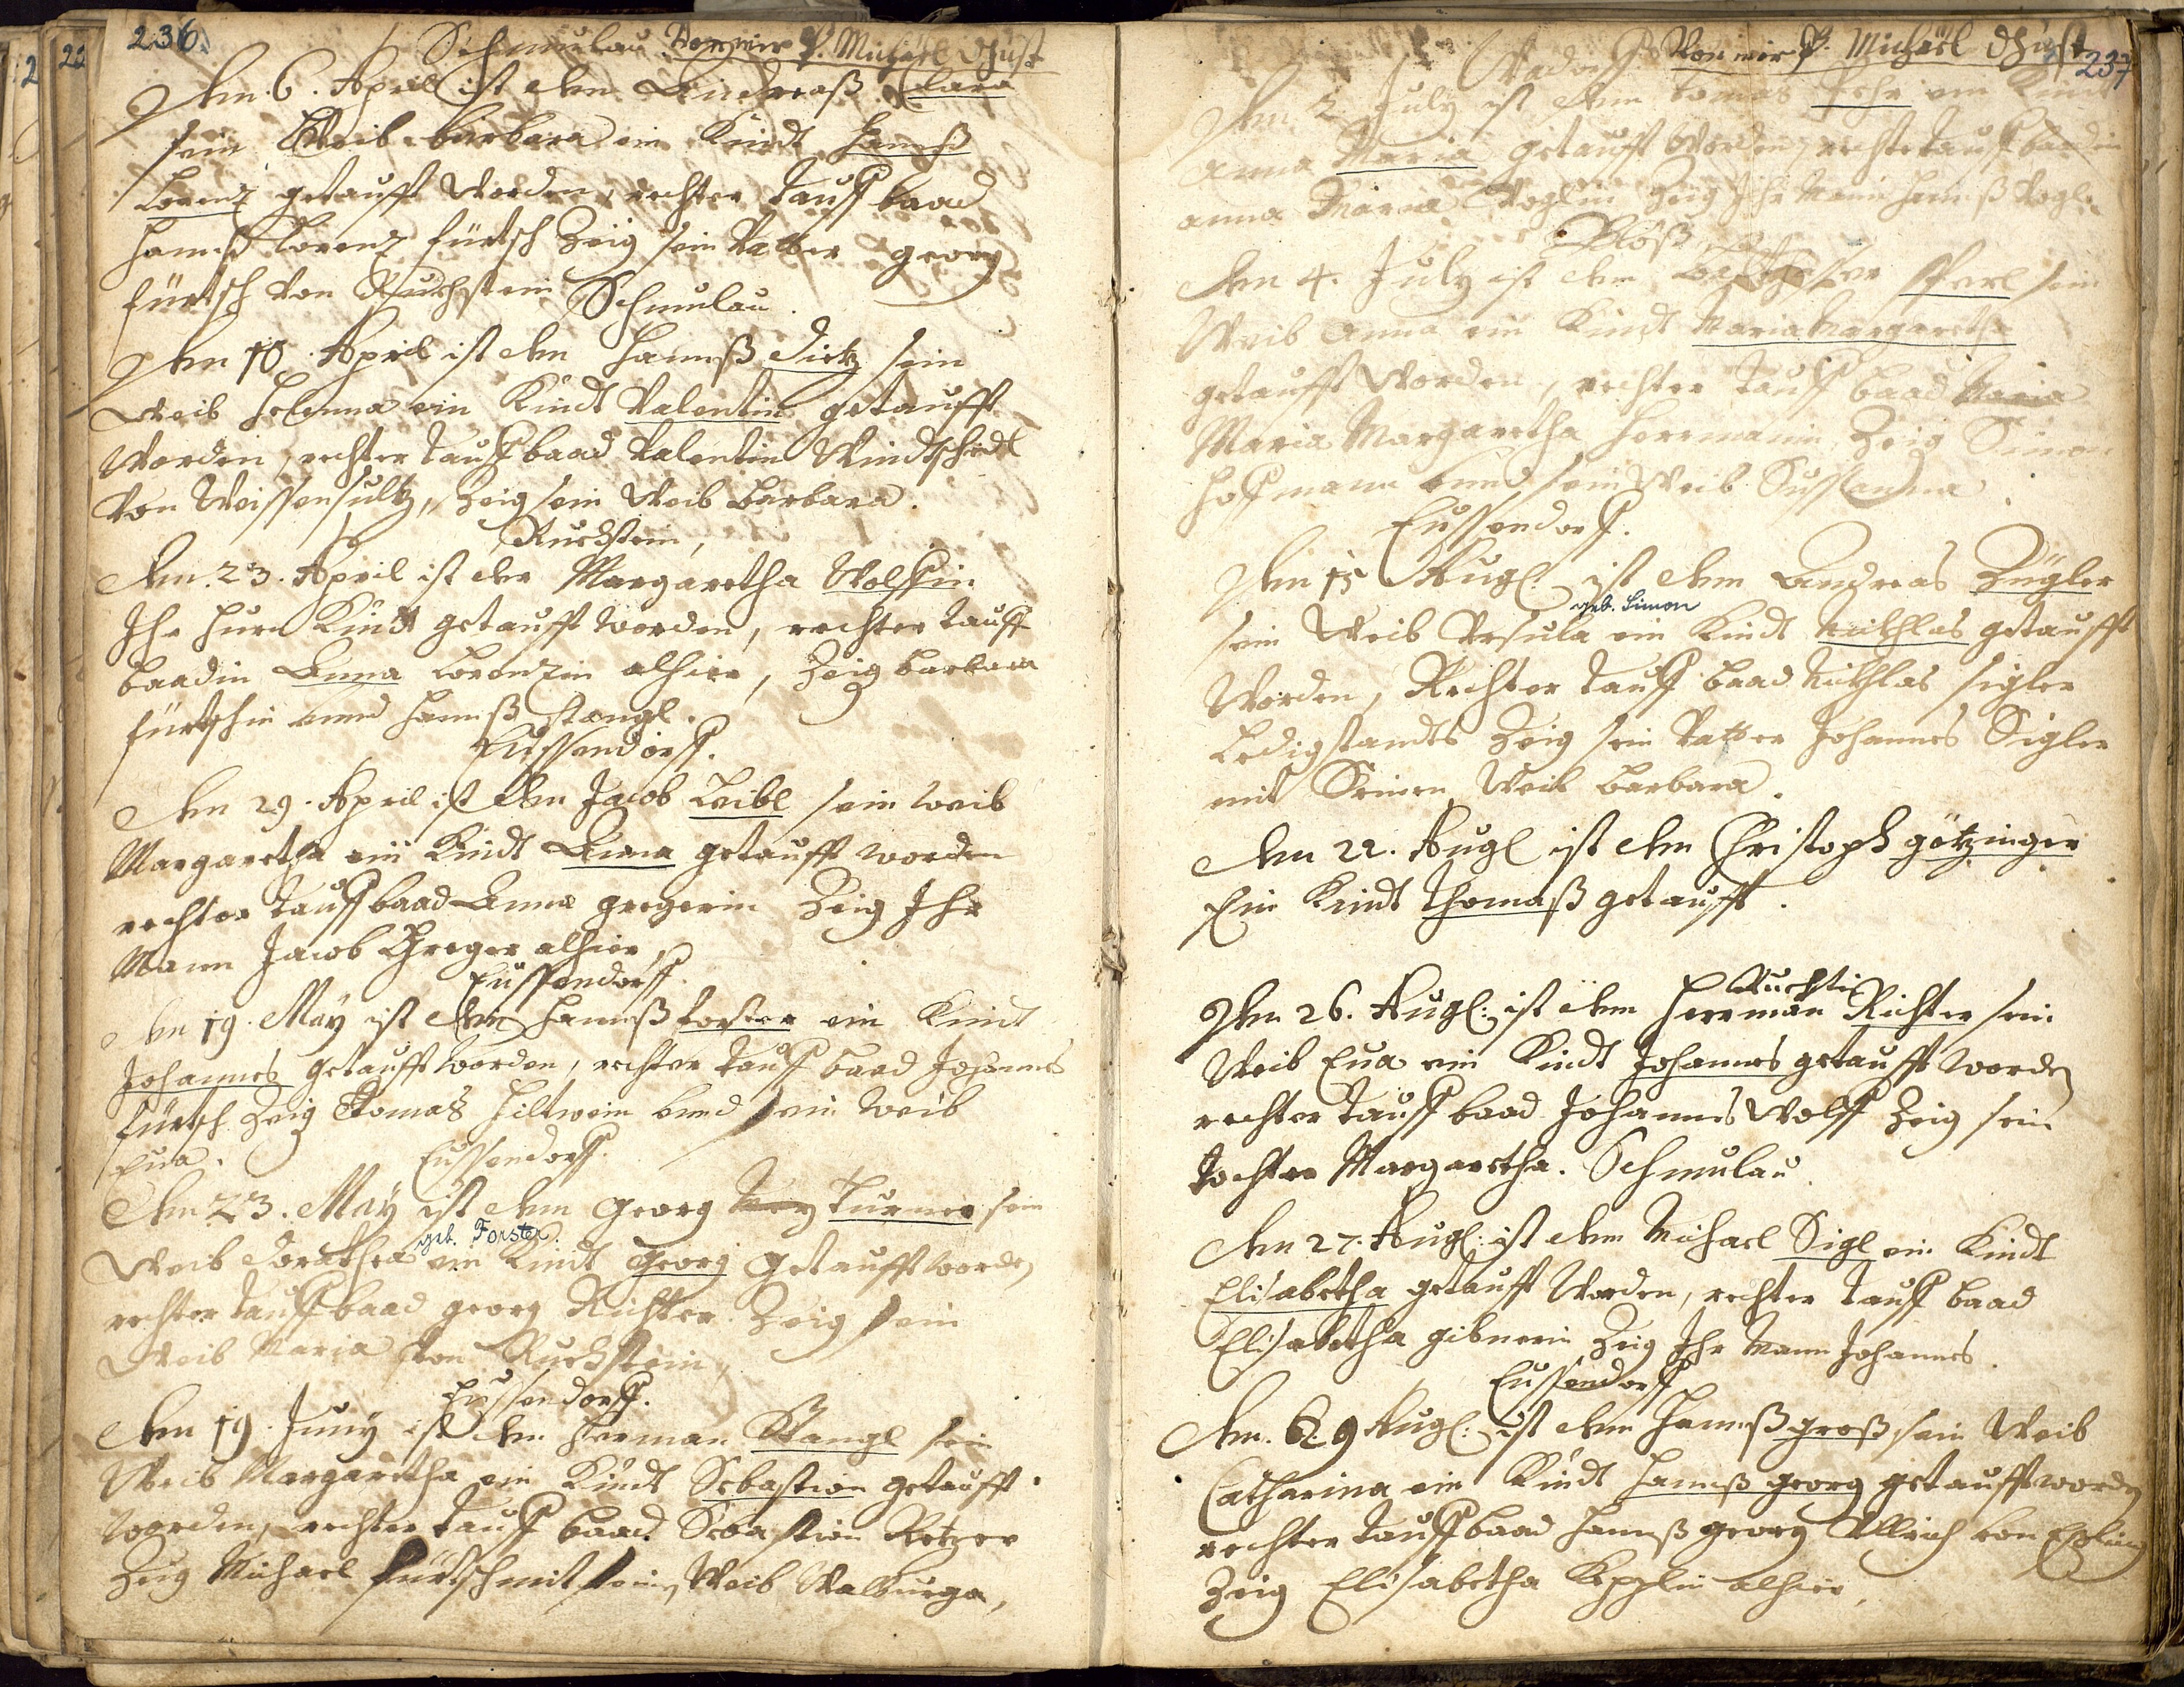 236.
Schmulau Von mir P. Michael
Den 6. April ist dem Andreaß Clara
sein Weib barbara ein Kindt Hannß
Lorenz getaufft Worden, rechter tauff baad
Hannß Lorenz fürtsch Zeig sein Vatter georg
fürtsch Von Ruckstein Schmulau.
Den 10. April ist dem Hannß Dietz sein
Weib Helenna ein Kindt Valentin getaufft
Worden, rechter tauff baad Valentin Windtschidl
Von Weissensultz, Zeig sein Weib Barbara.
Ruckstein,
Den 23. April ist der Margaretha Wolffin
Ihr Hurn Kindt getaufft worden, rechter tauff
baadin Anna Lorenzin alhier, Zeig barbara
fürtschin vnnd Hannß Stangl.
Eussendorff.
Den 29. April ist dem Jacob Leibl sein weib
Margaretha ein Kindt Anna getaufft worden
rechter tauff baad Anna gregerin Zeig Ihr
Mann Jacob Greger alhier,
Eussendorff.
Den 19. May ist dem Hannß forster ein Kindt
Johannes getaufft worden, rechter tauff baad Johannes
fürtsch Zeig Tomas Hiltwein vnnd sein Weib
Eua.
Eussendorff.
Den 23. May ist dem georg Turner sein
geb. Forster.
Weib Dorathea ein Kindt georg getaufft worden
rechter tauff baad georg Richter Zeig sein
Weib Maria Von Ruckstein,
Eussendorff.
Den 19. Juny ist dem Herman Stangl sein
Weib Margaretha ein Kindt Sebastian getaufft
worden, rechter tauff baad Sebastian Retzer
Zeig Michael fürtsch mit sein Weib Walburga,
237
Von mir P. Michael
Den 2 July ist dem tomas Fehr ein Kindt
Anna Maria getauft Worden, rechte tauff baadin
anna Maria Voglin Zeig Ihr Mann Hannß Vogl.
Plöß
Den 4. July ist dem sein
Weib Anna ein Kindt Maria Margaretha
getaufft Worden, rechter tauff baad Maria
Maria Margaretha Herrmanin Zeig Simon
Hoffmann vnnd sein Weib Sussanna.
Eussendorff.
Den 15 Augl. ist dem Andreas Zügler
geb. Simon
sein Weib Vrsula ein Kindt Nickhlas getaufft
Worden, Rechter tauff baad Nickhlas Sigler
Ledigstandts Zeig sein Vatter Johannes Sigler
mit Seinen Weib Barbara.
Den 22. Augl ist dem Christoph götzinger
Ein Kindt thomaß getaufft.
Ruchti
Den 26. Augl: ist dem Herrman Richter sein
Weib Eua ein Kindt Johannes getaufft worden
rechter tauff baad Johannes Wolff Zeig sein
tochter Margaretha. Schmulau
Den 27. Augl: ist dem Michael Sigl ein Kindt
Elisabetha getaufft Worden, rechter tauff baad
Elisabetha gibnerin Zeig Ihr Mann Johannes.
Eussendorff
Den. 29 Augl: ist dem Hannß groß, sein Weib
Catharina ein Kindt Hannß georg getaufft worden
rechter tauff baad Hannß georg Ullrich von
Zeig Elisabetha alhier,